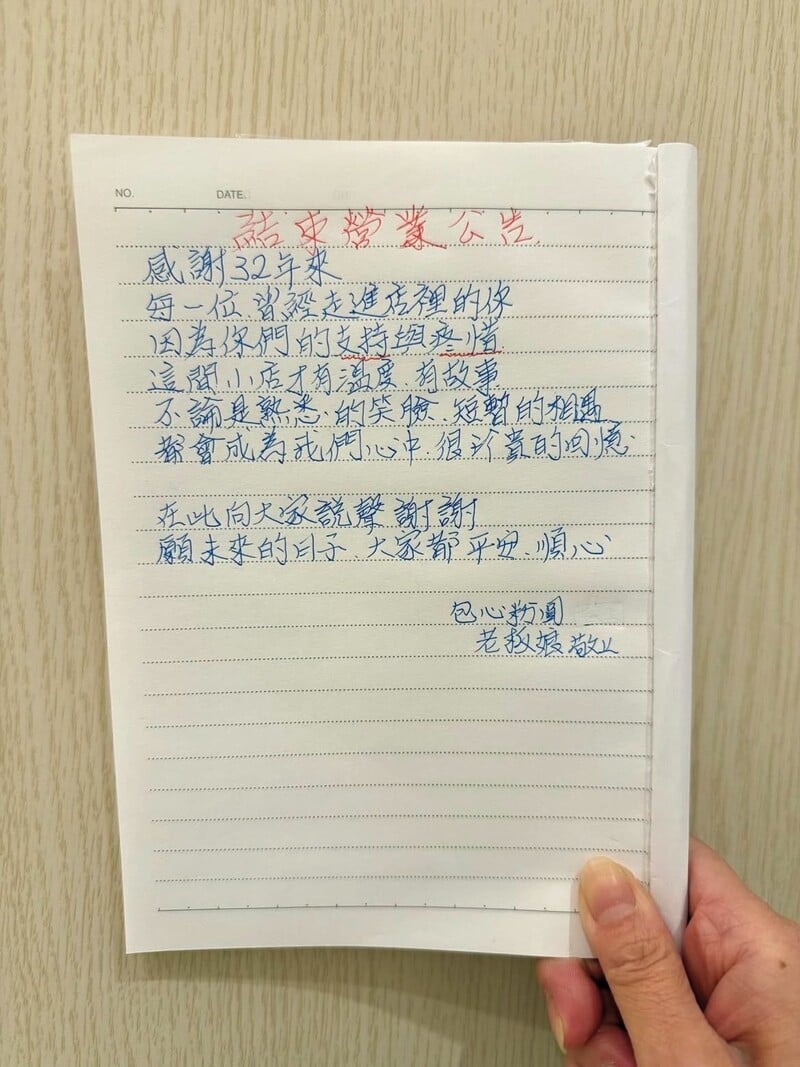 NO.
DATE.
結束營業公告
感謝32年來
每一位曾經走進店裡的你
因為你們的支持與疼惜
這間小店才有溫度、有故事
不論是熟悉的笑臉、短暫的相遇
都會成為我們心中、很珍貴的回憶
在此向大家說聲謝謝
願未來的日子、大家都平安、順心
包心粉圓
老板娘敬上